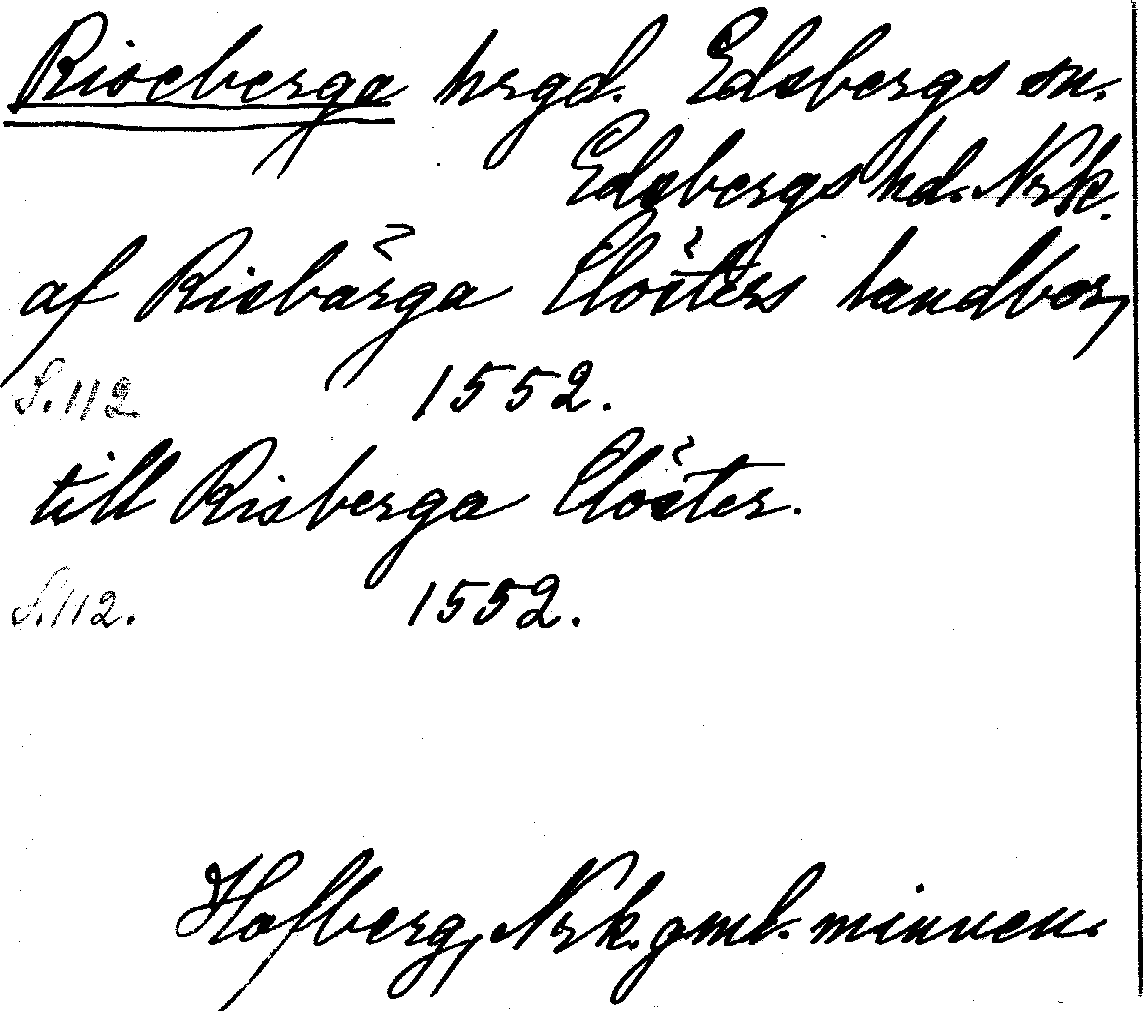 Riseberga hrgd. Edsbergs sn.
Edsbergs hd. Nrk.
af Risbärga Clöster​s landbor,
S. 112 1552.
till Risberga Clöster.
S. 112. 1552.
Hofberg, Nrk. gml. minnen.